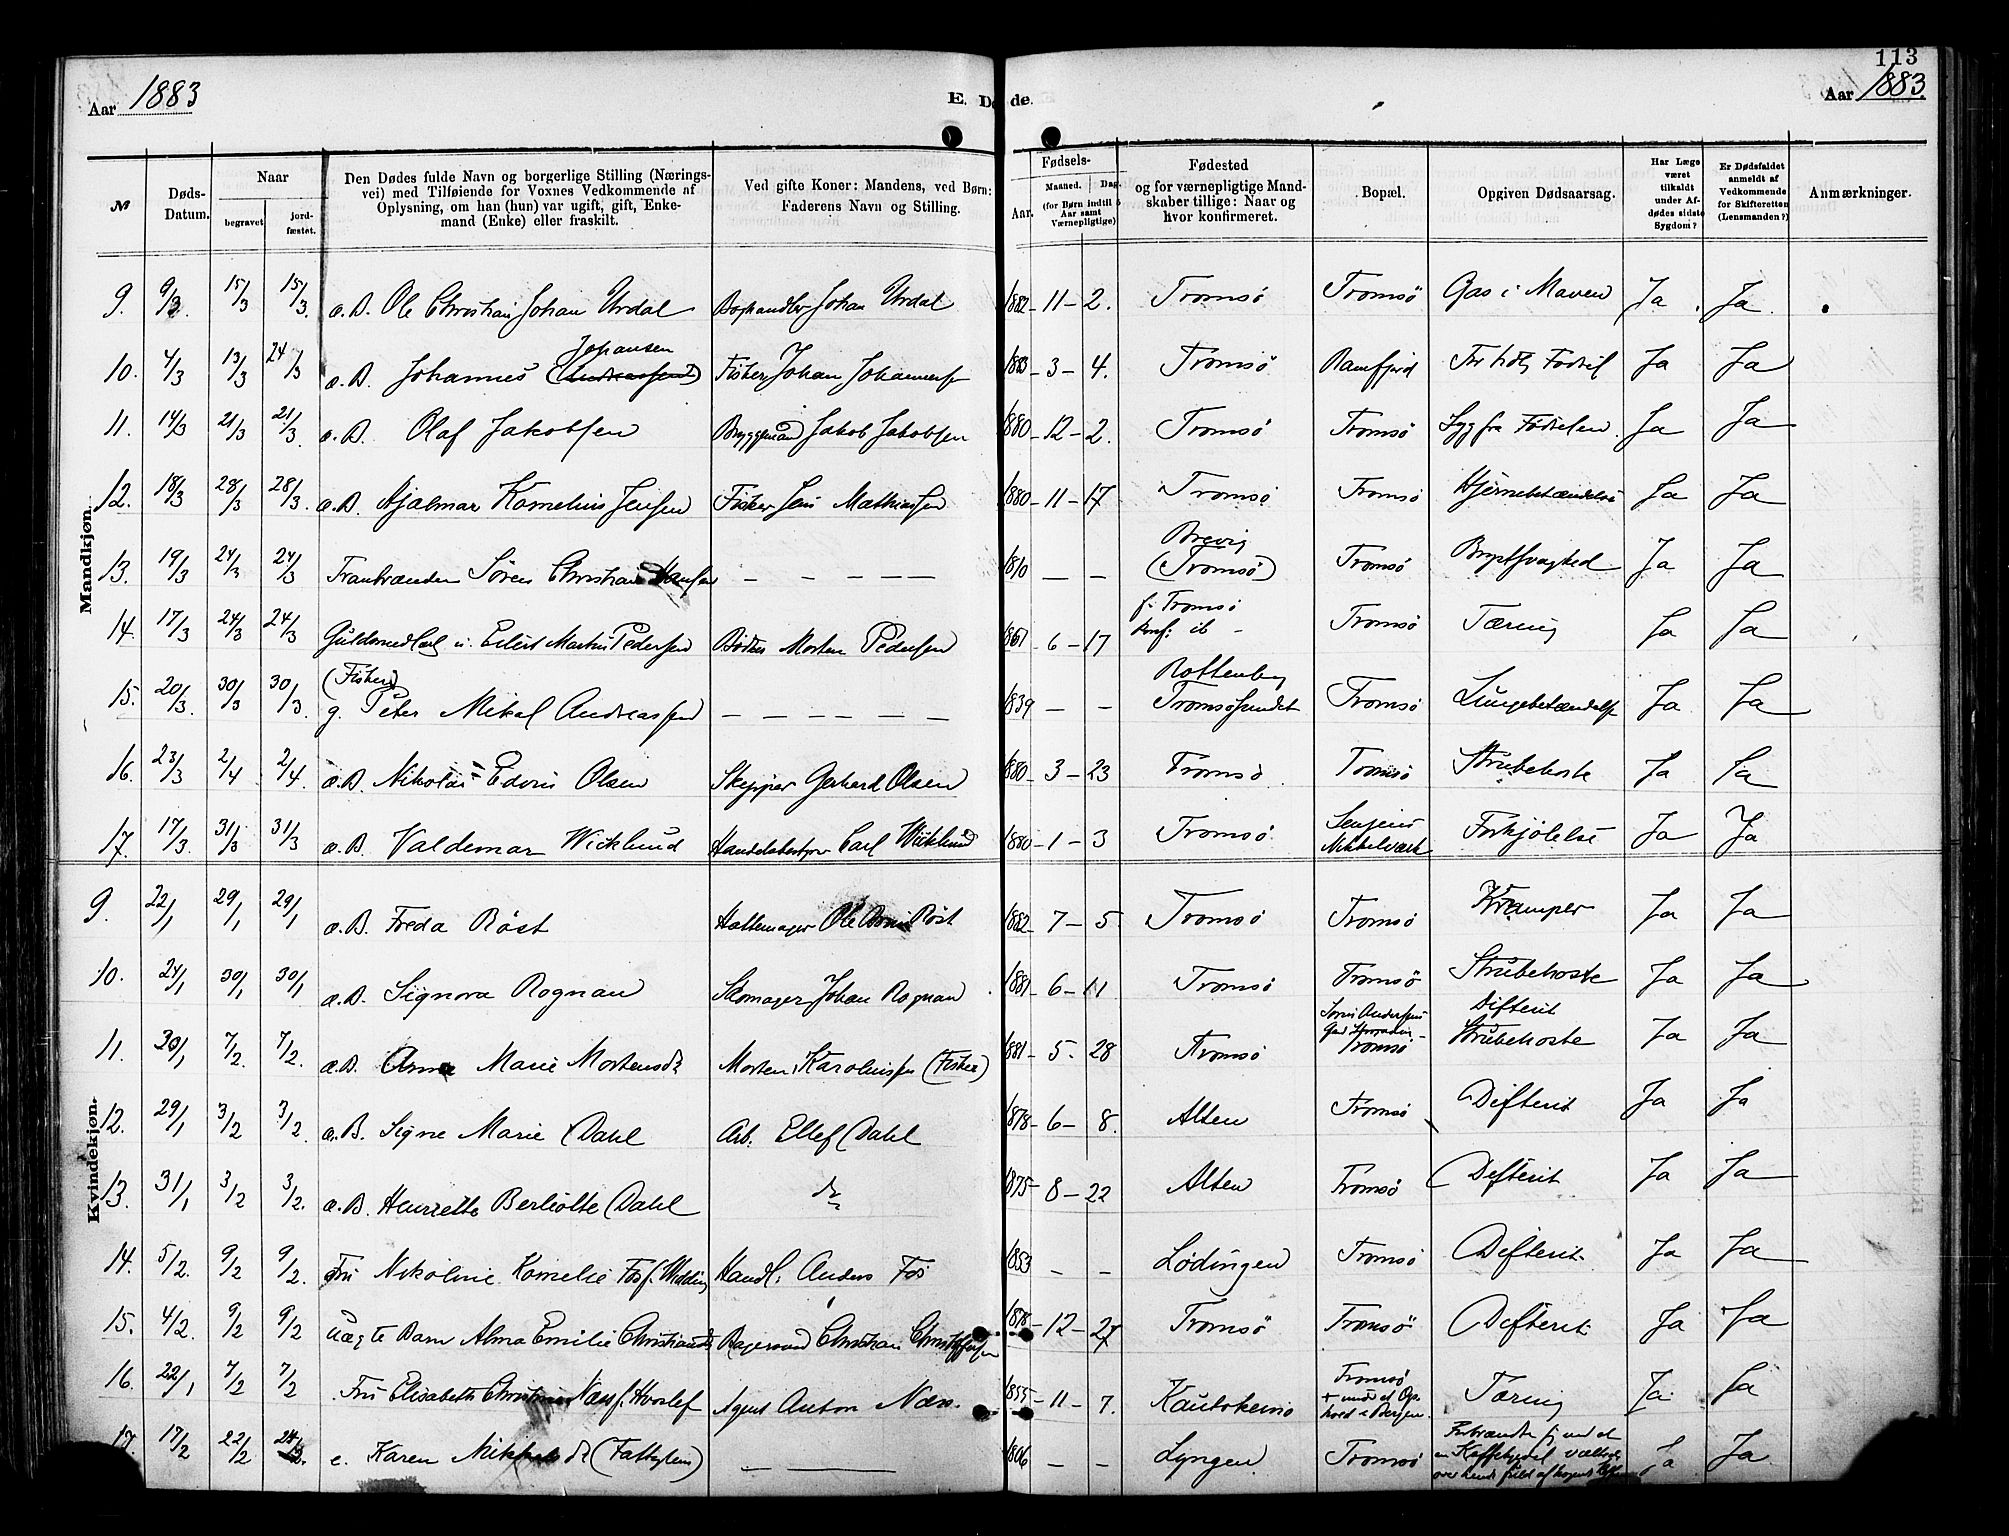 113
Aar 1883
E. Døde.
Aar 1883.
№
Døds-Datum.
Naar
begravet
jordfæstet.
Den Dødes fulde Navn og borgerlige Stilling (Næringsvei) med Tilføiende for Voxnes Vedkommende af Oplysning, om han (hun) var ugift, gift, Enkemand (Enke) eller fraskilt.
Ved gifte Koner: Mandens, ved Børn: Faderens Navn og Stilling.
Fødsels-
Aar.
Maaned.
Dag.
(for Børn indtil 5 Aar samt Værnepligtige)
Fødested
og for værnepligtige Mandskaber tillige: Naar og hvor konfirmeret.
Bopæl.
Opgiven Dødsaarsag.
Har Læge været tilkaldt under Afdødes sidste Sygdom?
Er Dødsfaldet anmeldt af Vedkommende for Skifteretten (Lensmanden?)
Anmærkninger.
Mandkjøn.
9. 9/3. 15/3 15/3. æ.B. Ole Christian Johan Urdal Boghandler Johan Urdal 1882 - 11 - 2. Tromsø Tromsø Gas i Maven Ja Ja
10. 4/3 13/3 24/3 æ.B. Johannes Johansen (Andreassen) Fisker Johan Johannesen 1883 - 3 - 4. Tromsø Ramfjord For tidlig Fødsel Ja Ja
11. 14/3 21/3 21/3. æ.B. Olaf Jakobsen Bryggemand Jakob Jakobsen 1880 - 12 - 2. Tromsø Tromsø Syg fra Fødselen. Ja Ja
12. 18/3 28/3 28/3. æ.B. Hjalmar Kornelius Jensen Fisker Jens Mathiassen 1880 - 11 - 17 Tromsø Tromsø Hjernebetændelse Ja Ja
13. 19/3 24/3 24/3 Tranbrænder Søren Christian Hansen — — — — — 1810 — — Brevig (Tromsø) Tromsø Brystsvaghed Ja Ja
14. 17/3 24/3 24/3 Guldsmedlærl u. Eilert Martin Pedersen Bødker Morten Pedersen 1867 - 6 - 17 f. Tromsø Konf: ib - Tromsø Tæring Ja Ja
15. 20/3. 30/3 30/3. (Fisker) g. Peter Mikal Andreassen — — — — — 1839 — — Rottenberg Tromsøsundet Tromsø Lungebetændelse Ja Ja
16. 23/3 2/4 2/4. æ.B. Nikolai Edvin Olsen Skipper Gerhard Olsen 1880 - 3 - 23 Tromsø Tromsø Strubehoste Ja Ja
17. 17/3. 31/3 31/3 æ.B. Valdemar Wicklund Handelsbestyrer Carl Wicklund 1880 - 1 - 3 Tromsø. Senjens Nikkelværk Forkjølelse Ja Ja
Kvindekjøn.
9. 22/1 29/1 29/1 æ.B. Freda Røst Hattemager Ole Røst 1882 - 7 - 5. Tromsø Tromsø Kramper Ja Ja
10. 24/1 30/1 30/1 æ.B. Signora Rognan Skomager Johan Rognan 1881 - 6 - 11 Tromsø Tromsø Strubehoste Ja Ja
11. 30/1 7/2. 7/2. æ.B. Anna Marie Mortensdr Morten Karoliussen (Fisker) 1881 - 5. - 28 Tromsø Søren Andersens Gaard Tromsø Difterit Strubehoste Ja Ja
12. 29/1 3/2 3/2. æ.B. Signe Marie Dahl Arb. Ellef Dahl 1878 - 6 - 8. Alten Tromsø Difterit Ja Ja
13. 31/1 3/2 3/2. æ.B. Henriette Berliotte Dahl do 1875 - 8 - 22 Alten Tromsø Difterit Ja Ja
14. 5/2. 9/2 9/2. Fru Nikoline Kornelie Fos f. Widding Handl. Anders Fos 1853 — — Lødingen Tromsø Difterit. Ja Ja
15. 4/2. 9/2 9/2 uægte Barn Alma Emilie Christiansdr Christian Christoffersen 1878 - 12 - 27 Tromsø Tromsø Difterit Ja Ja
16. 22/1 7/2 7/2 Fru Elisabeth Christine Næss f. Hvoslef Agent Anton Næss. 1855 - 11 - 7. Kautokeino Tromsø + under et Ophold i Bergen. Tæring Ja. Ja
17. 17/2 22/2 24/2. e. Karen Mikkelsdr (Fattiglem) — 1806 — — Lyngen Tromsø Forbrændte sig ved at en Kaffekjedel væltede over hende fuld af Ja Ja